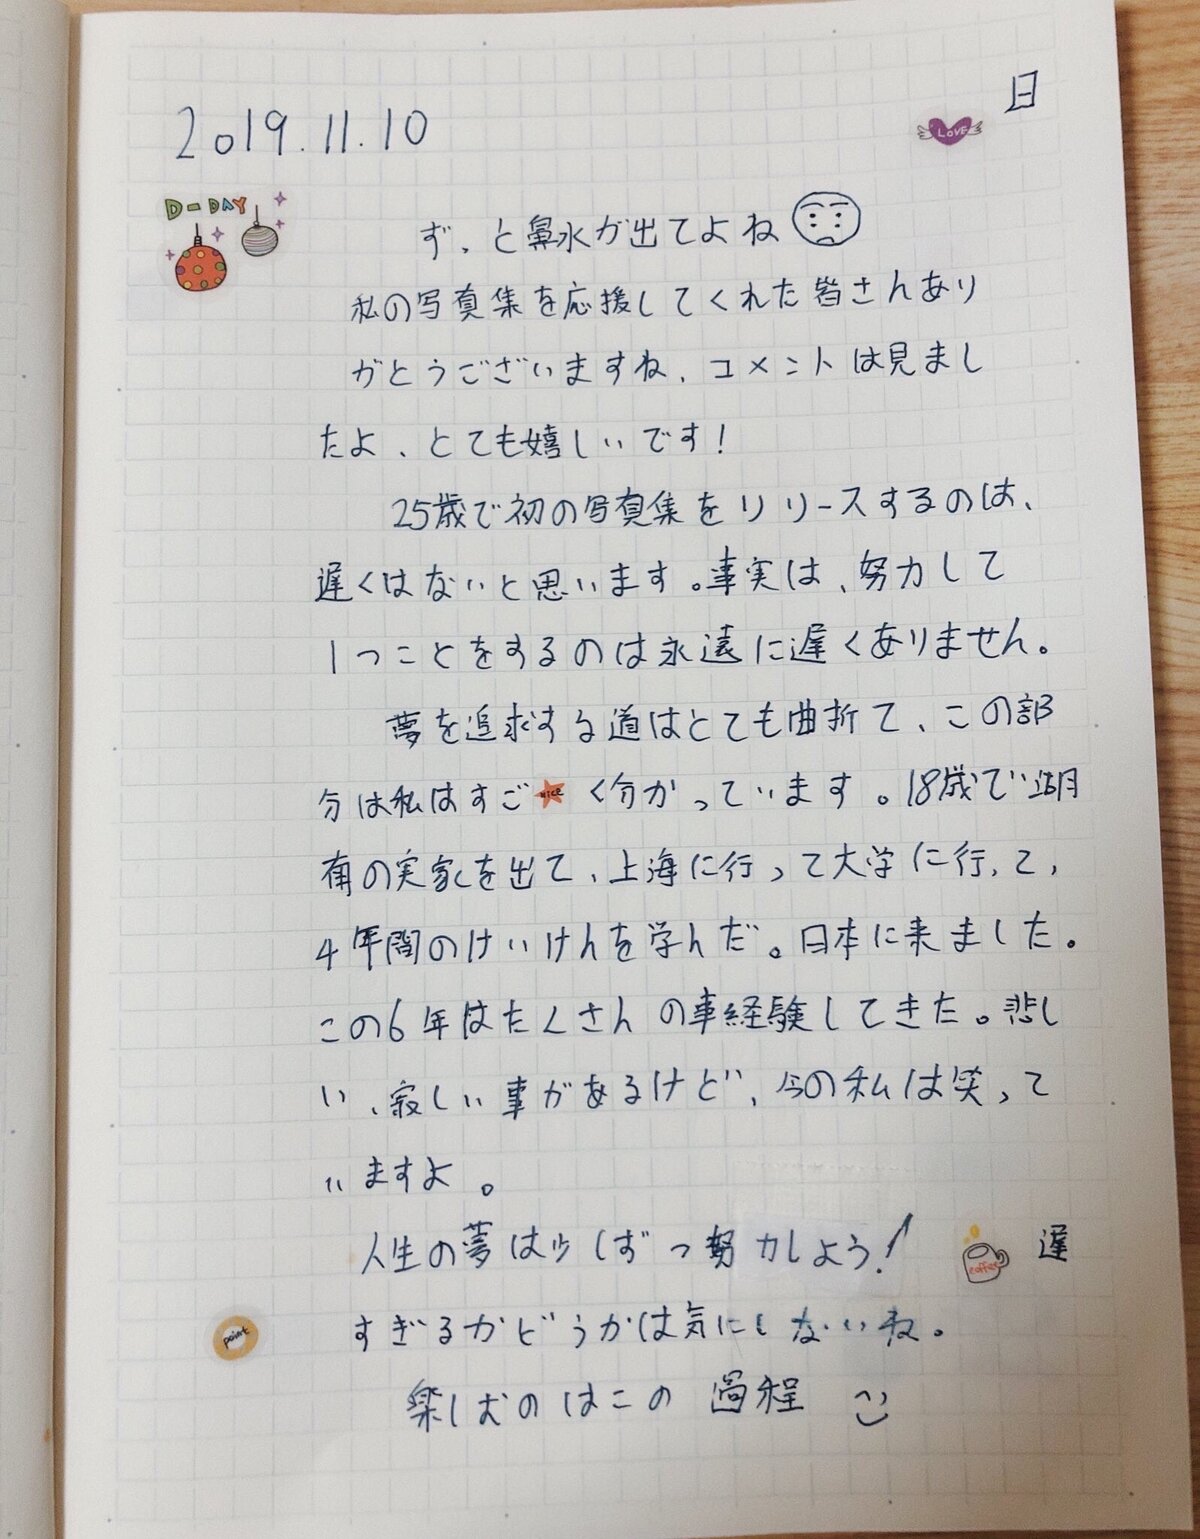 2019.11.10
日
LOVE
D-DAY
ずっと鼻水が出てよね
私の写真集を応援してくれた皆さんあり
がとうございますね、コメントは見まし
たよ、とても嬉しいです!
25歳で初の写真集をリリースするのは、
遅くはないと思います。事実は、努力して
1つことをするのは永遠に遅くありません。
夢を追求する道はとても曲折て、この部
分は私はすご NICE く分かっています。18歳で湖
南の実家を出て、上海に行って大学に行って、
4年間のけいけんを学んだ。日本に来ました。
この6年はたくさんの事経験してきた。悲し
い、寂しい事があるけど、今の私は笑って
いますよ。
人生の夢は少しずつ努力しよう! coffee 遅
point すぎるかどうかは気にしないね。
楽しむのはこの過程